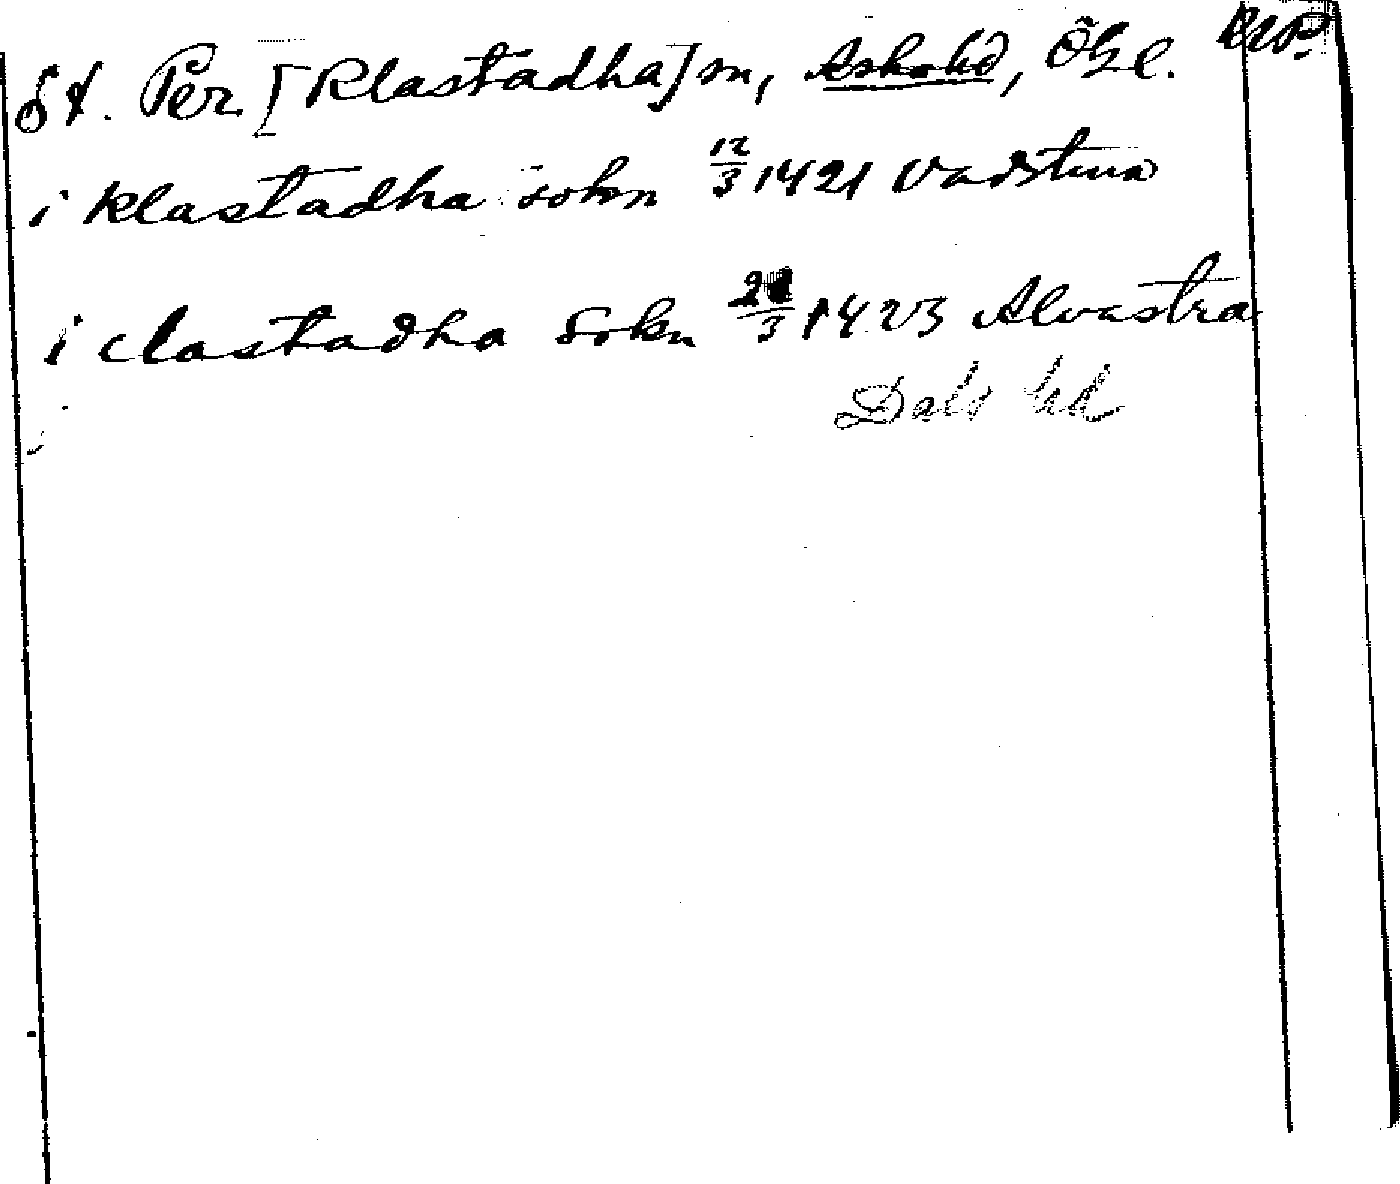 St. Per [Klastadha] sn, Askahd, Ögl. RAP.
i klastadha sokn 12/3 1421 Vadstena
i clastadha Sokn 1423 Alvastra
Dals hd